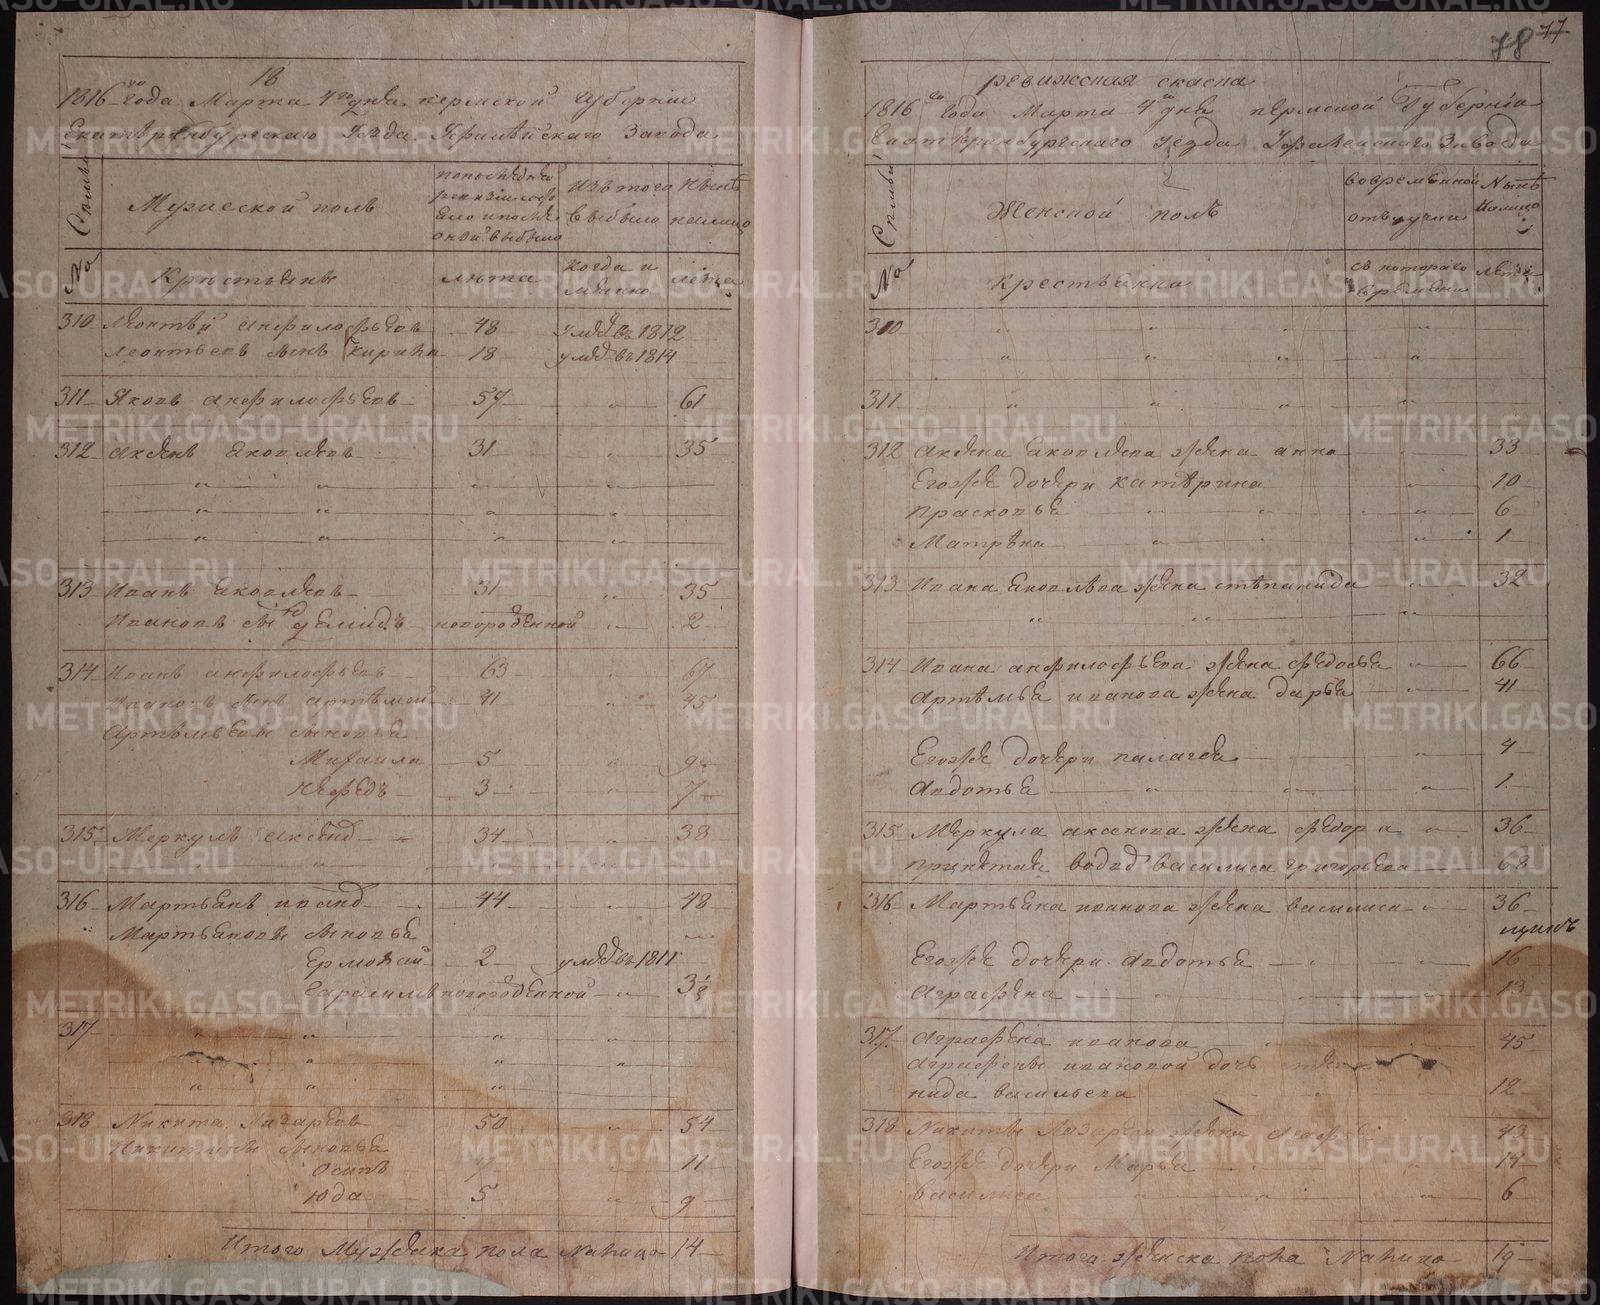 78 77
18
1816 го года Марта 4 го дня пермской губернии
Екатеринбургскаго уезда Уфалейскаго завода
Семьи
Мужеской полъ
попоследней ревизии состояло ипосле оной выбыло
Изътого выбыло
Ныне налицо
№
Крестьяне
лета
когда и менно
лета
310 Леонтей анфилофьевъ 48 умре въ 1812
леонтьевъ сынъ кирила 18 умре въ 1814
311 Яковъ анфилофьевъ 57 61
312 аксенъ Яковлевъ 31 35
313 Иванъ Яковлевъ 31 35
Ивановъ сынъ демидъ новорожденной 2
314 Иванъ анфилофьевъ 63 67
Ивановъ сынъ артемей 41 45
Артемьевы сыновья
Михаила 5 9
Нефедъ 3 7
315 Меркулъ аксенов 34 38
316 Мартьянъ иванов 44 48
Мартьяновы сыновья
Ермолай 2 умре въ 1811
Гарасимъ новорожденной 3½
317
318 Никита Лазаревъ 50 54
Никитины сыновья
Осипъ 7 11
Юда 5 9
Итого Мужеска пола Налицо 14
ревижская скаска
1816 го года Марта 4 го дня пермской Губернии
Екатеринбургскаго уезда Уфалейскаго Завода
Семьи
Женской полъ
вовременной отълучки
Ныне налицо
№
Крестьянки
съ котораго времени
лета
310
311
312 аксена Яковлева жена анна 33
Егожъ дочери катерина 10
прасковья 6
Матрена 1
313 Ивана Яковлева жена степанида 32
314 Ивана анфилофьева жена федосья 66
артемья иванова жена дарья 41
Егожъ дочери палагея 4
авдотья 1
315 Меркула аксенова жена федора 36
василиса григорьева 68
316 Мартьяна иванова жена василиса 36
Егожъ дочери авдотья 16
аграфена 13
317 аграфена иванова 45
аграфены ивановой дочь степа
нида васильева 12
318 Никиты Лазарева жена 43
Егожъ дочери Марья 14
василиса 6
Итого женска пола Налицо 19
METRIKI.GASO-URAL.RU